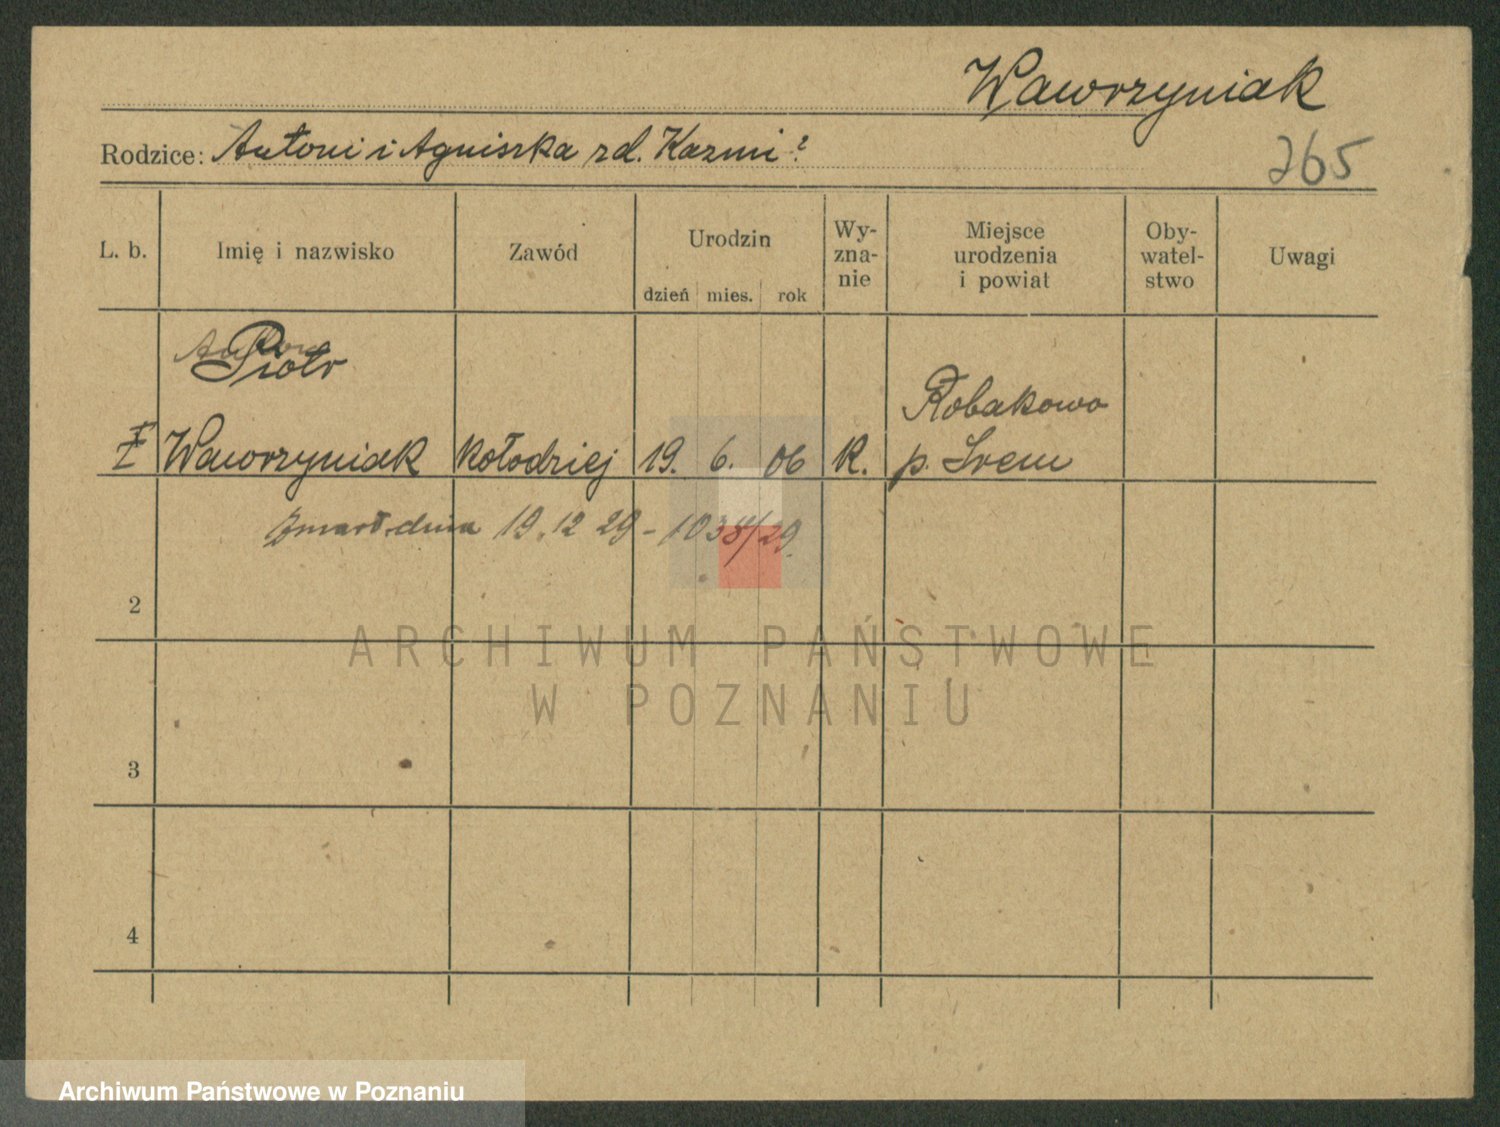 Wawrzyniak
Rodzice: Antoni i Agniszka zd. Kazmi ?
265
L. b.
Imię i nazwisko
Zawód
Urodzin
dzień mies. rok
Wy-
zna-
nie
Miejsce
urodzenia
i powiat
Oby-
watel-
stwo
Uwagi
Piotr
Wawrzyniak kołodziej 19. 6. 06 R. Robakowo
p. Srem
Zmarł dnia 19.12 29 - 1038/29.
2
3
4
ARCHIWUM PAŃSTWOWE
W POZNANIU
Archiwum Państwowe w Poznaniu